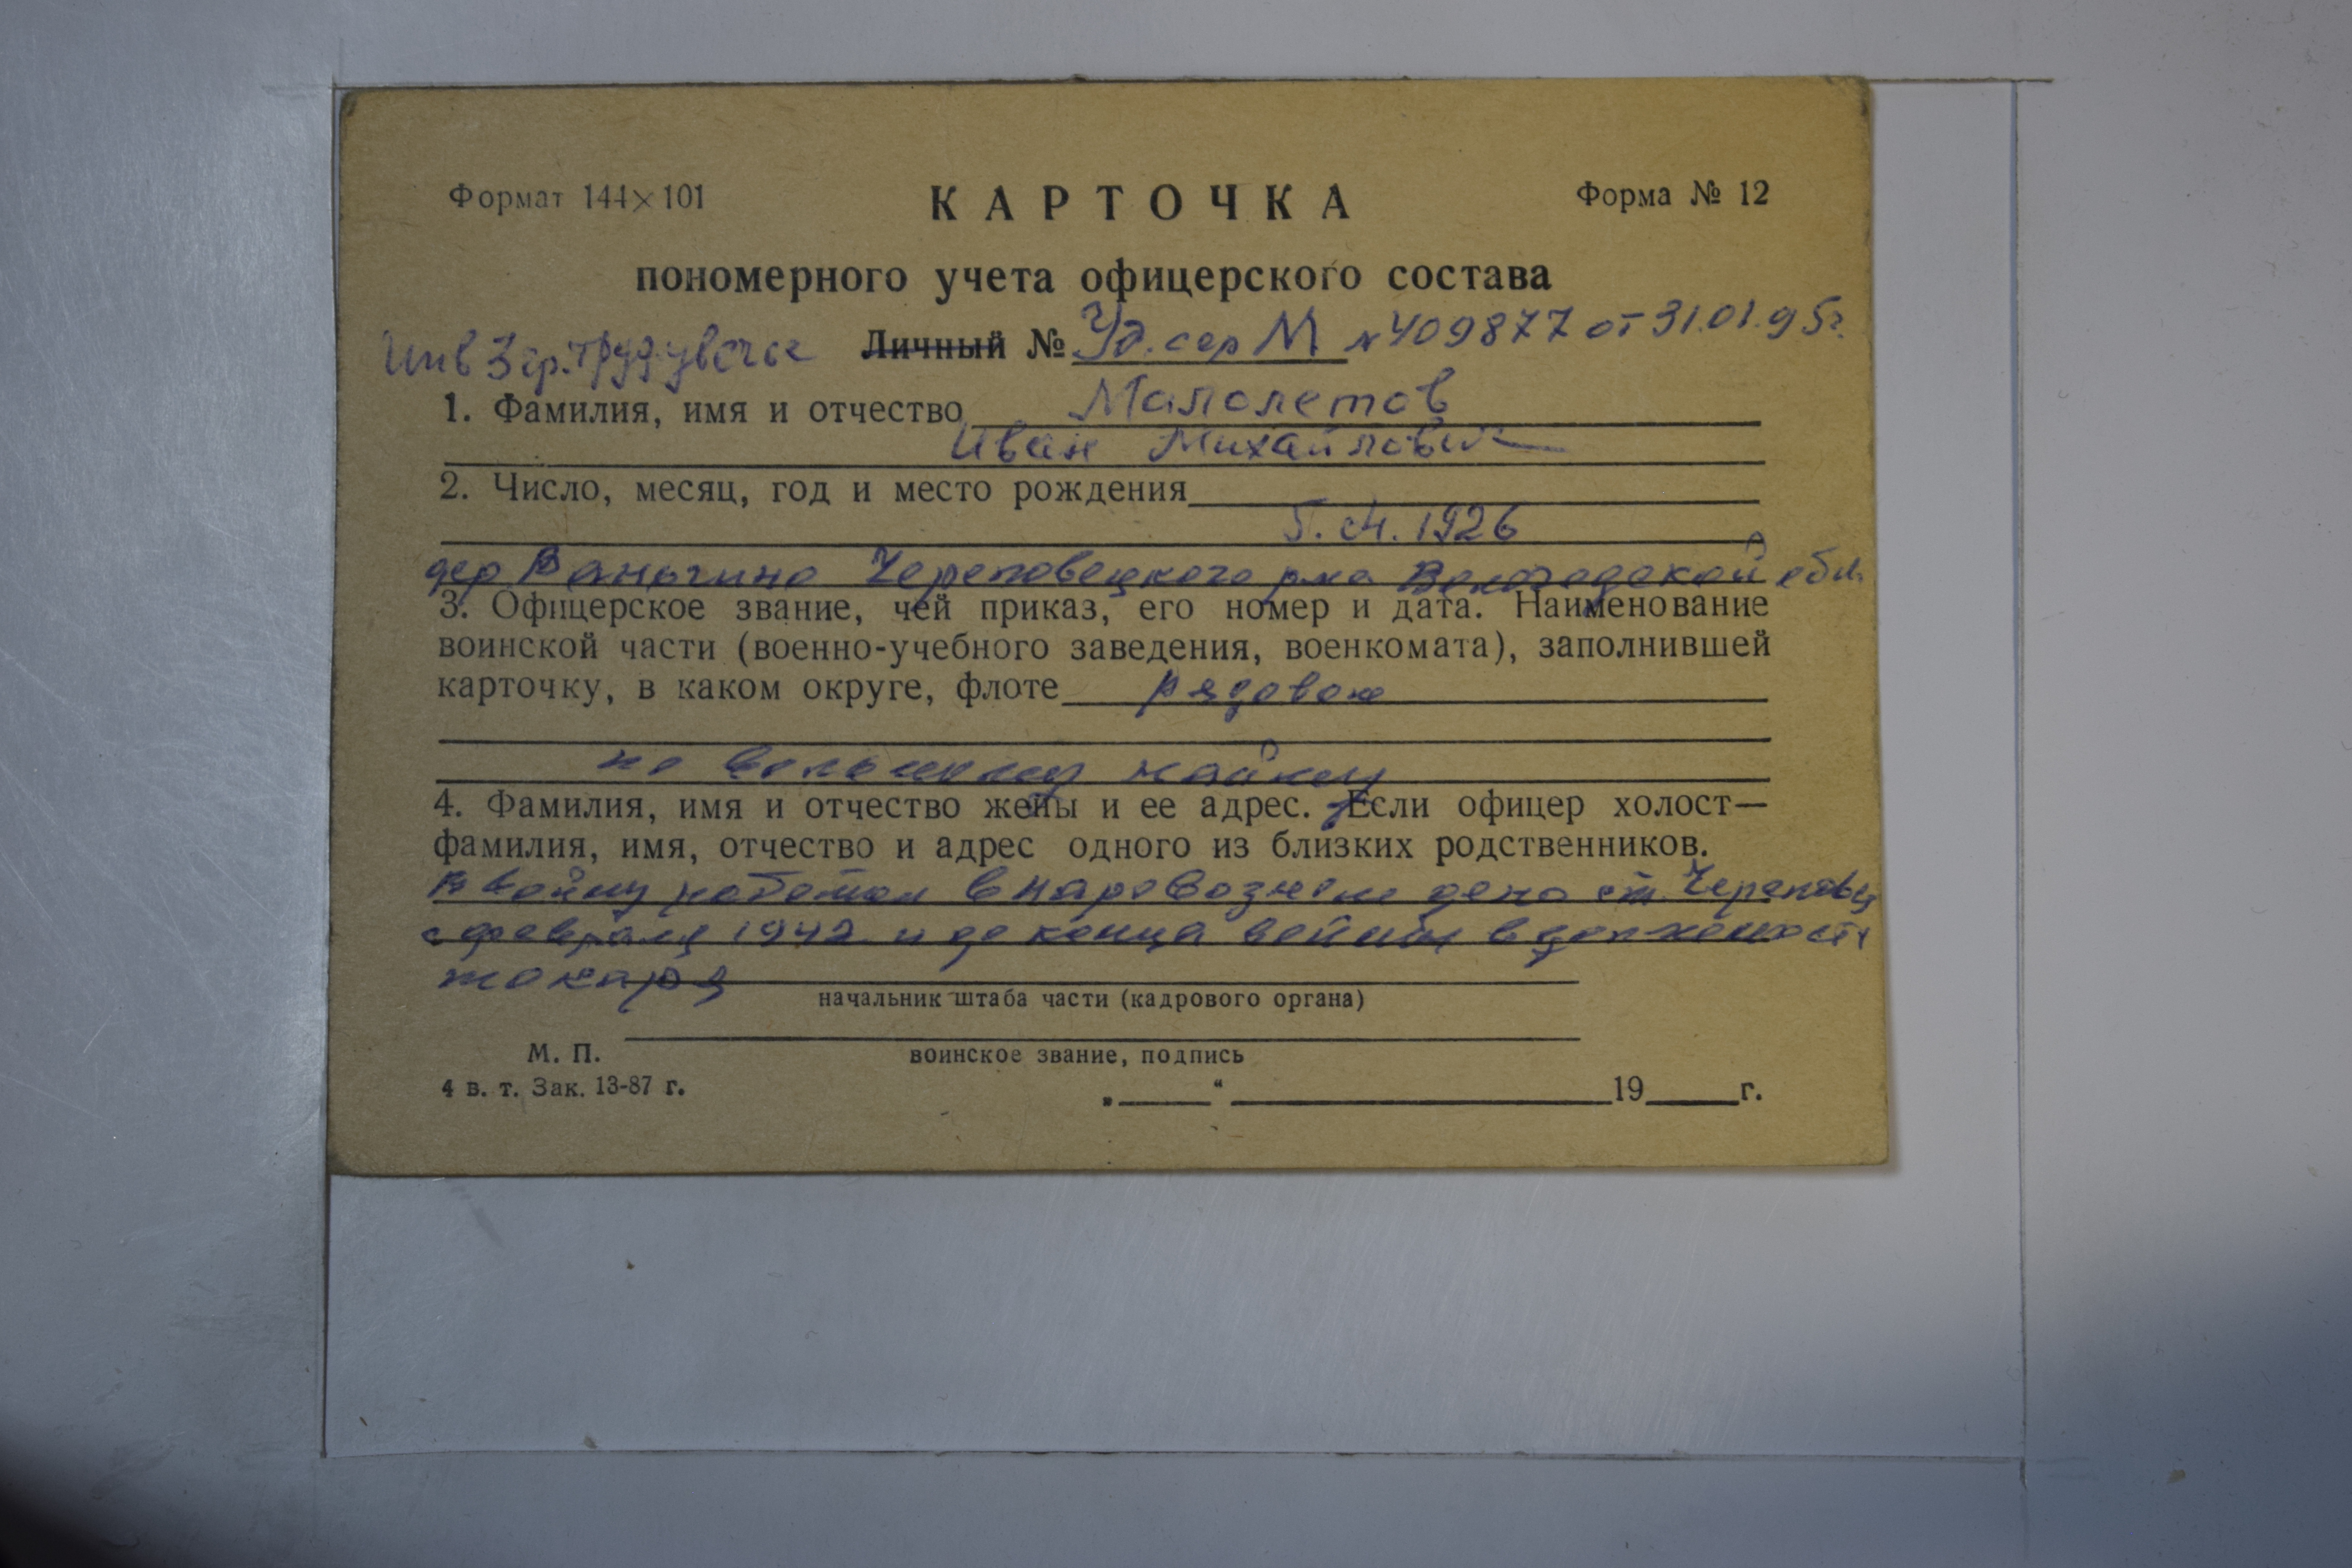 Формат 144×101
КАРТОЧКА
Форма № 12
пономерного учета офицерского состава
Инв 3 гр. труд.увечье Личный № Уд. сер М № 409877 от 31.01.95г.
1. Фамилия, имя и отчество Малолетов
Иван Михайлович
2. Число, месяц, год и место рождения
1926
дер Ваньгино Череповецкого р-на Вологодской обл.
3. Офицерское звание, чей приказ, его номер и дата. Наименование
воинской части (военно-учебного заведения, военкомата), заполнившей
карточку, в каком округе, флоте рядовой
по вольному найму
4. Фамилия, имя и отчество жены и ее адрес. Если офицер холост—
фамилия, имя, отчество и адрес одного из близких родственников.
В войну работал в паровозном депо ст. Череповец
с февраля 1942 и до конца войны в должности
токаря
начальник штаба части (кадрового органа)
М. П. воинское звание, подпись
4 в. т. Зак. 13-87 г.
„ “ 19 г.